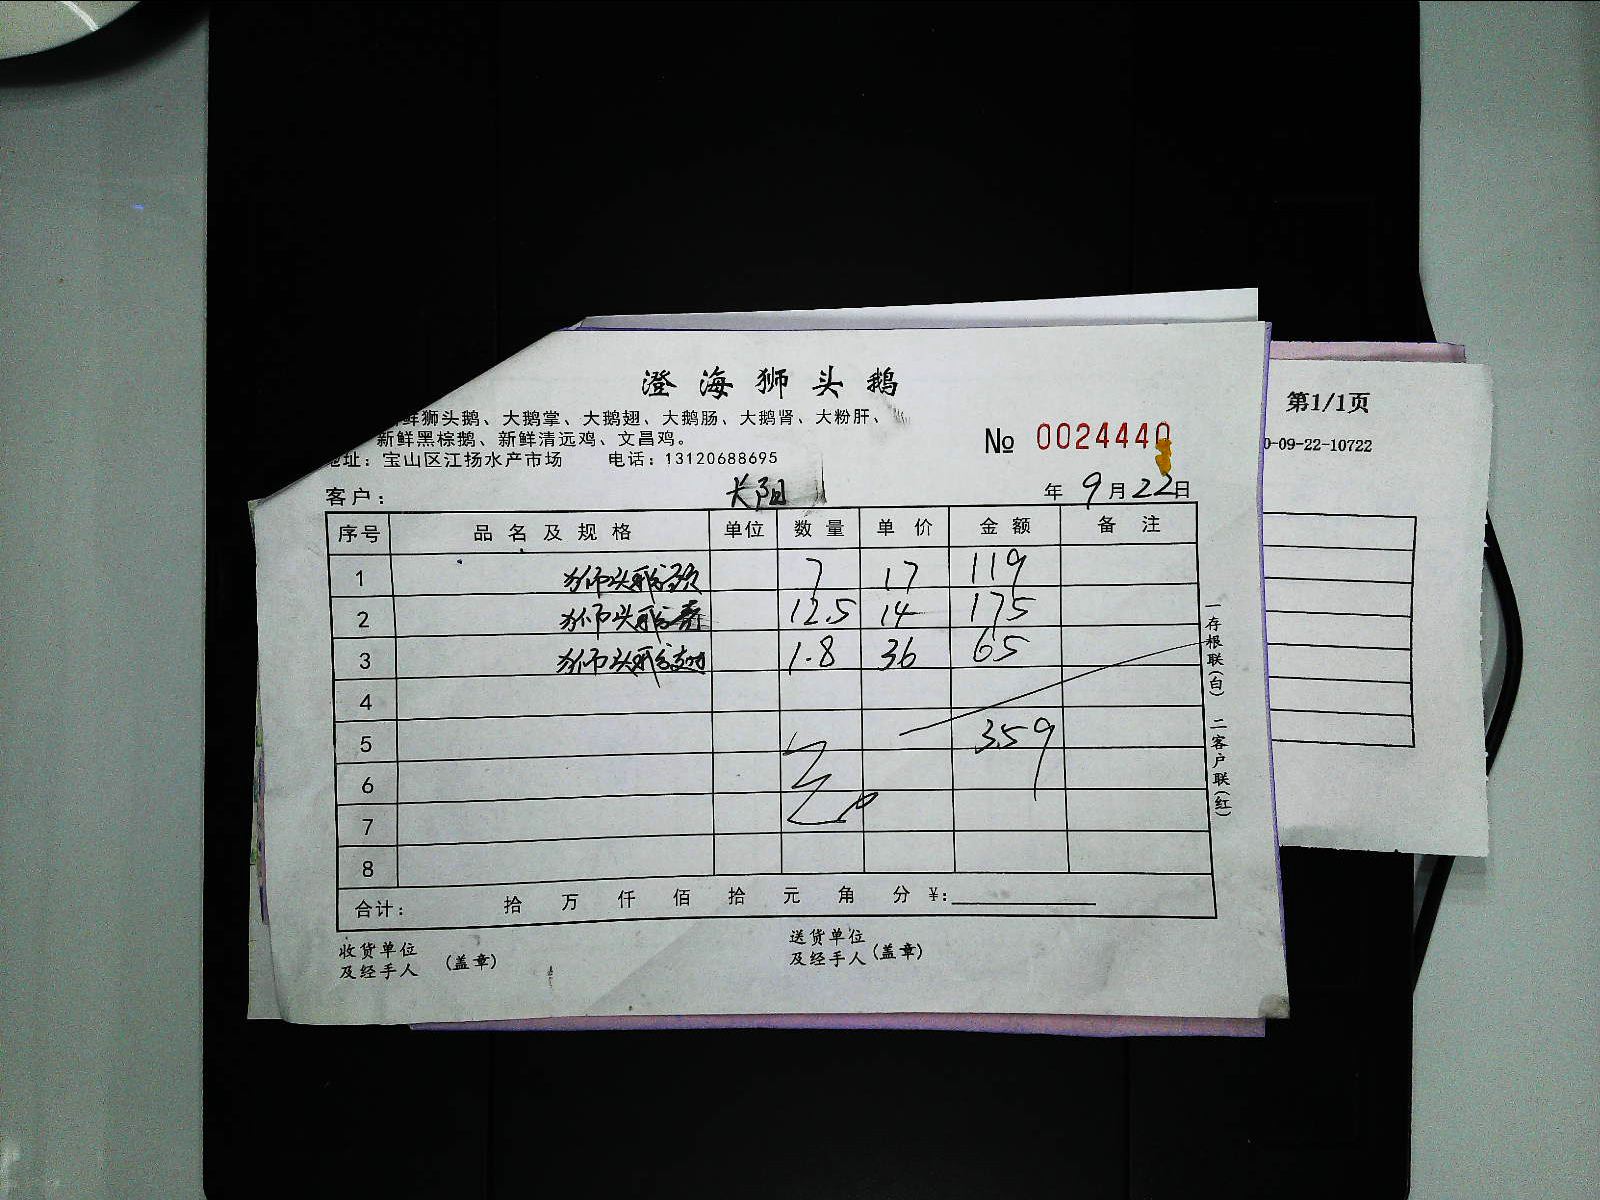 澄海狮头鹅
鲜狮头鹅、大鹅掌、大鹅翅、大鹅肠、大鹅肾、大粉肝、
新鲜黑棕鹅、新鲜清远鸡、文昌鸡。
地址：宝山区江扬水产市场 电话：13120688695
№ 0024440
客户： 长阳 年 9 月 22 日
序号 品名及规格 单位 数量 单价 金额 备注
1 狮头鹅头 7 17 119
2 狮头鹅 12.5 14 175
3 狮头鹅翅 1.8 36 65
4
5 359
6
7
8
合计： 拾 万 仟 佰 拾 元 角 分 ¥：
收货单位
及经手人 （盖章）
送货单位
及经手人（盖章）
一存根联（白） 二客户联（红）
第1/1页
0-09-22-10722